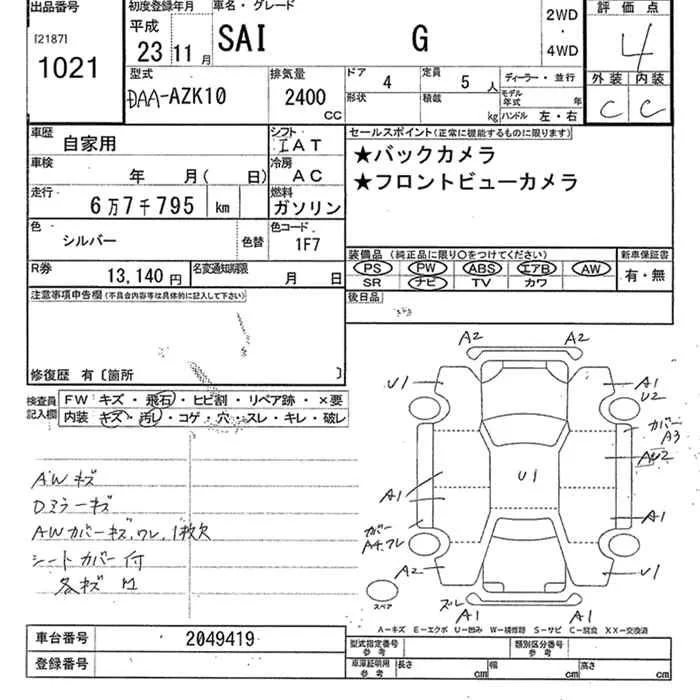 出品番号
[2187]
1021
初度登録年月
平成
23 11月
車名・グレード
SAI G
2WD
・
4WD
評価点
4
外装 内装
C C
型式
DAA-AZK10
排気量
2400
CC
ドア 4
定員 5 人
形状
積載 kg
ディーラー・並行
モデル年式 年
ハンドル 左・右
車歴 自家用
シフト IAT
車検 年 月( 日)
冷房 AC
走行 6万7千795 km
燃料 ガソリン
色 シルバー 色替
色コード 1F7
R券 13,140円
名変通知期限 月 日
セールスポイント(正常に機能するものに限ります)
★バックカメラ
★フロントビューカメラ
装備品(純正品に限り○をつけてください)
PS PW ABS エアB AW
SR ナビ TV カワ
新車保証書
有・無
後日品
注意事項申告欄(不具合内容等は具体的に記入して下さい)
修復歴 有〔箇所 〕
検査員記入欄
FW キズ・飛石・ヒビ割・リペア跡・×要
内装 キズ・汚レ・コゲ・穴・スレ・キレ・破レ
AWキズ
Dミラーキズ
AWカバーキズ、ワレ、1枚欠
シートカバー付
各キズ
A2 A2
U1 A1
U2
カバー
A3
U1
A1 A1
カバー
A4.ワレ
A2 U1
スペア
ズレ
A1 A1
A-キズ E-エクボ U-凹み W-補修跡 S-サビ C-腐食 XX-交換済
車台番号 2049419
登録番号
型式指定番号
参考
類別区分番号
参考
車庫証明用
参考
長さ cm 幅 cm 高さ cm